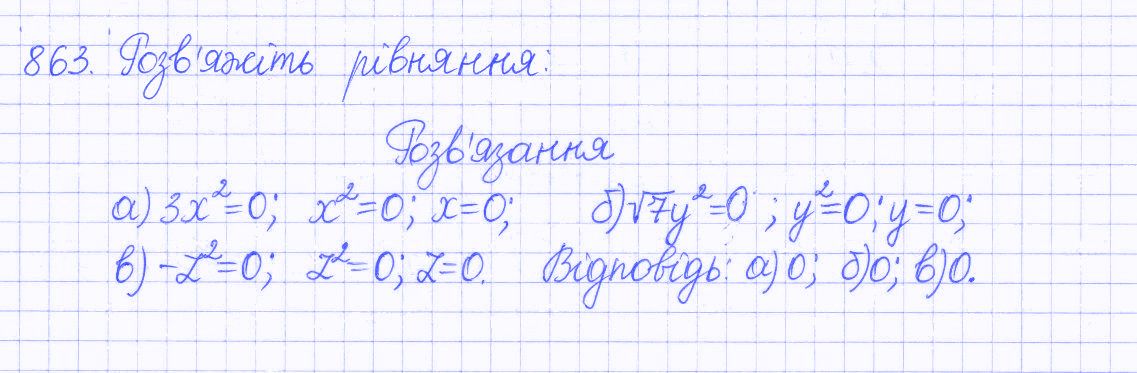 863. Розв'яжіть рівняння:
Розв'язання
а) 3x²=0; x²=0; x=0; б) √7y²=0; y²=0; y=0;
в) -z²=0; z²=0; z=0. Відповідь: а) 0; б) 0; в) 0.